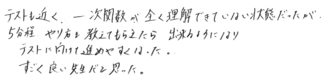 テストも近く、一次関数が全く理解できていない状態だったが、
5分程 やり方を教えてもらえたら 出来るようになり
テストに向けて進めやすくなった。
すごく良い先生だと思った。